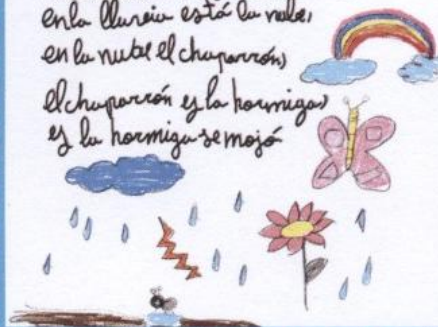 en la lluvia está la nube,
en la nube el chaparrón,
el chaparrón es la hormiga,
y la hormiga se mojó